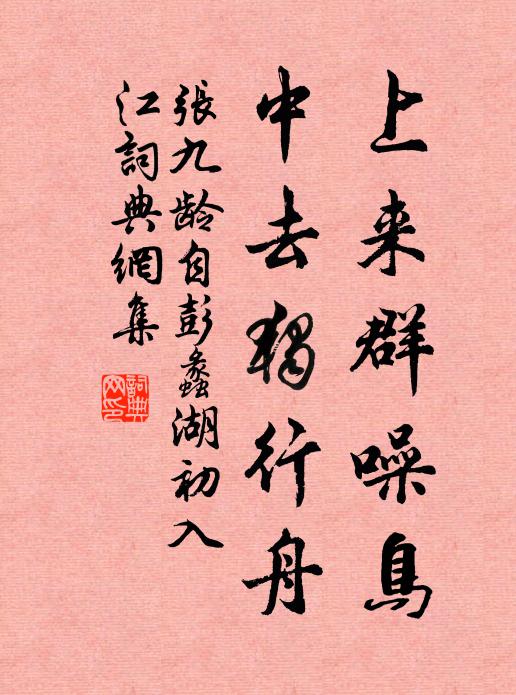 上来群噪鳥
中去獨行舟
張九齡自彭蠡湖初入
江詞典網集
詞典
网印